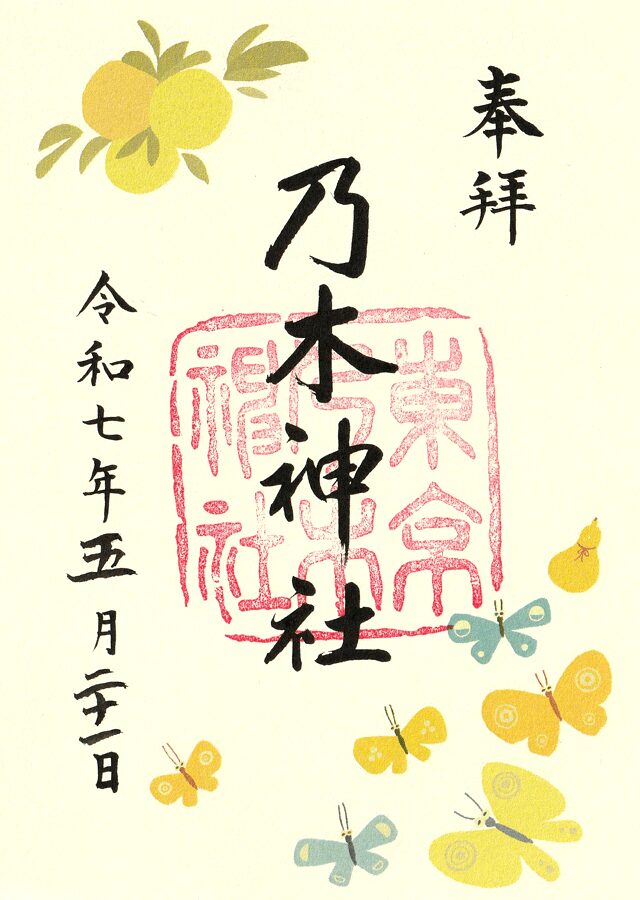 奉拝
乃木神社
東京
乃木
神社
令和七年五月二十一日